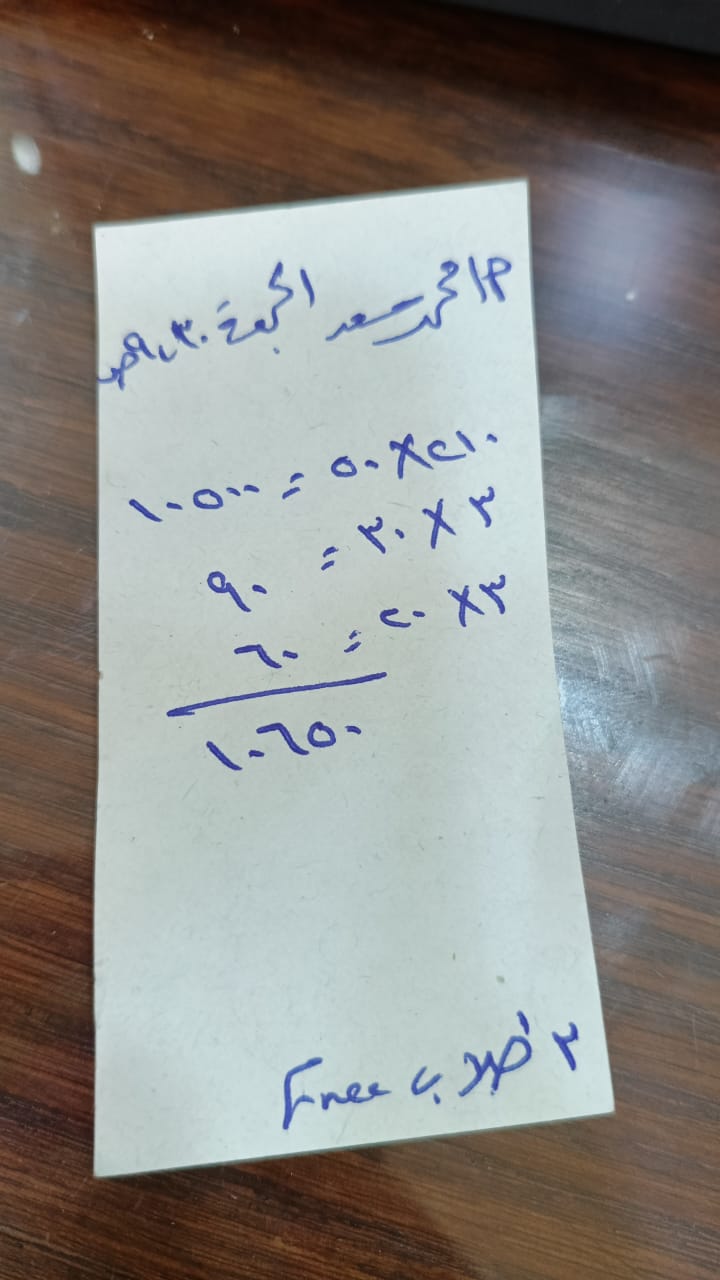 م/ محمد سعد الجمعة ٩,٣٠ ص
٢١٠ × ٥٠ = ١٠٥٠٠
٣ × ٣٠ = ٩٠
٣ × ٢٠ = ٦٠
١٠٦٥٠
Free